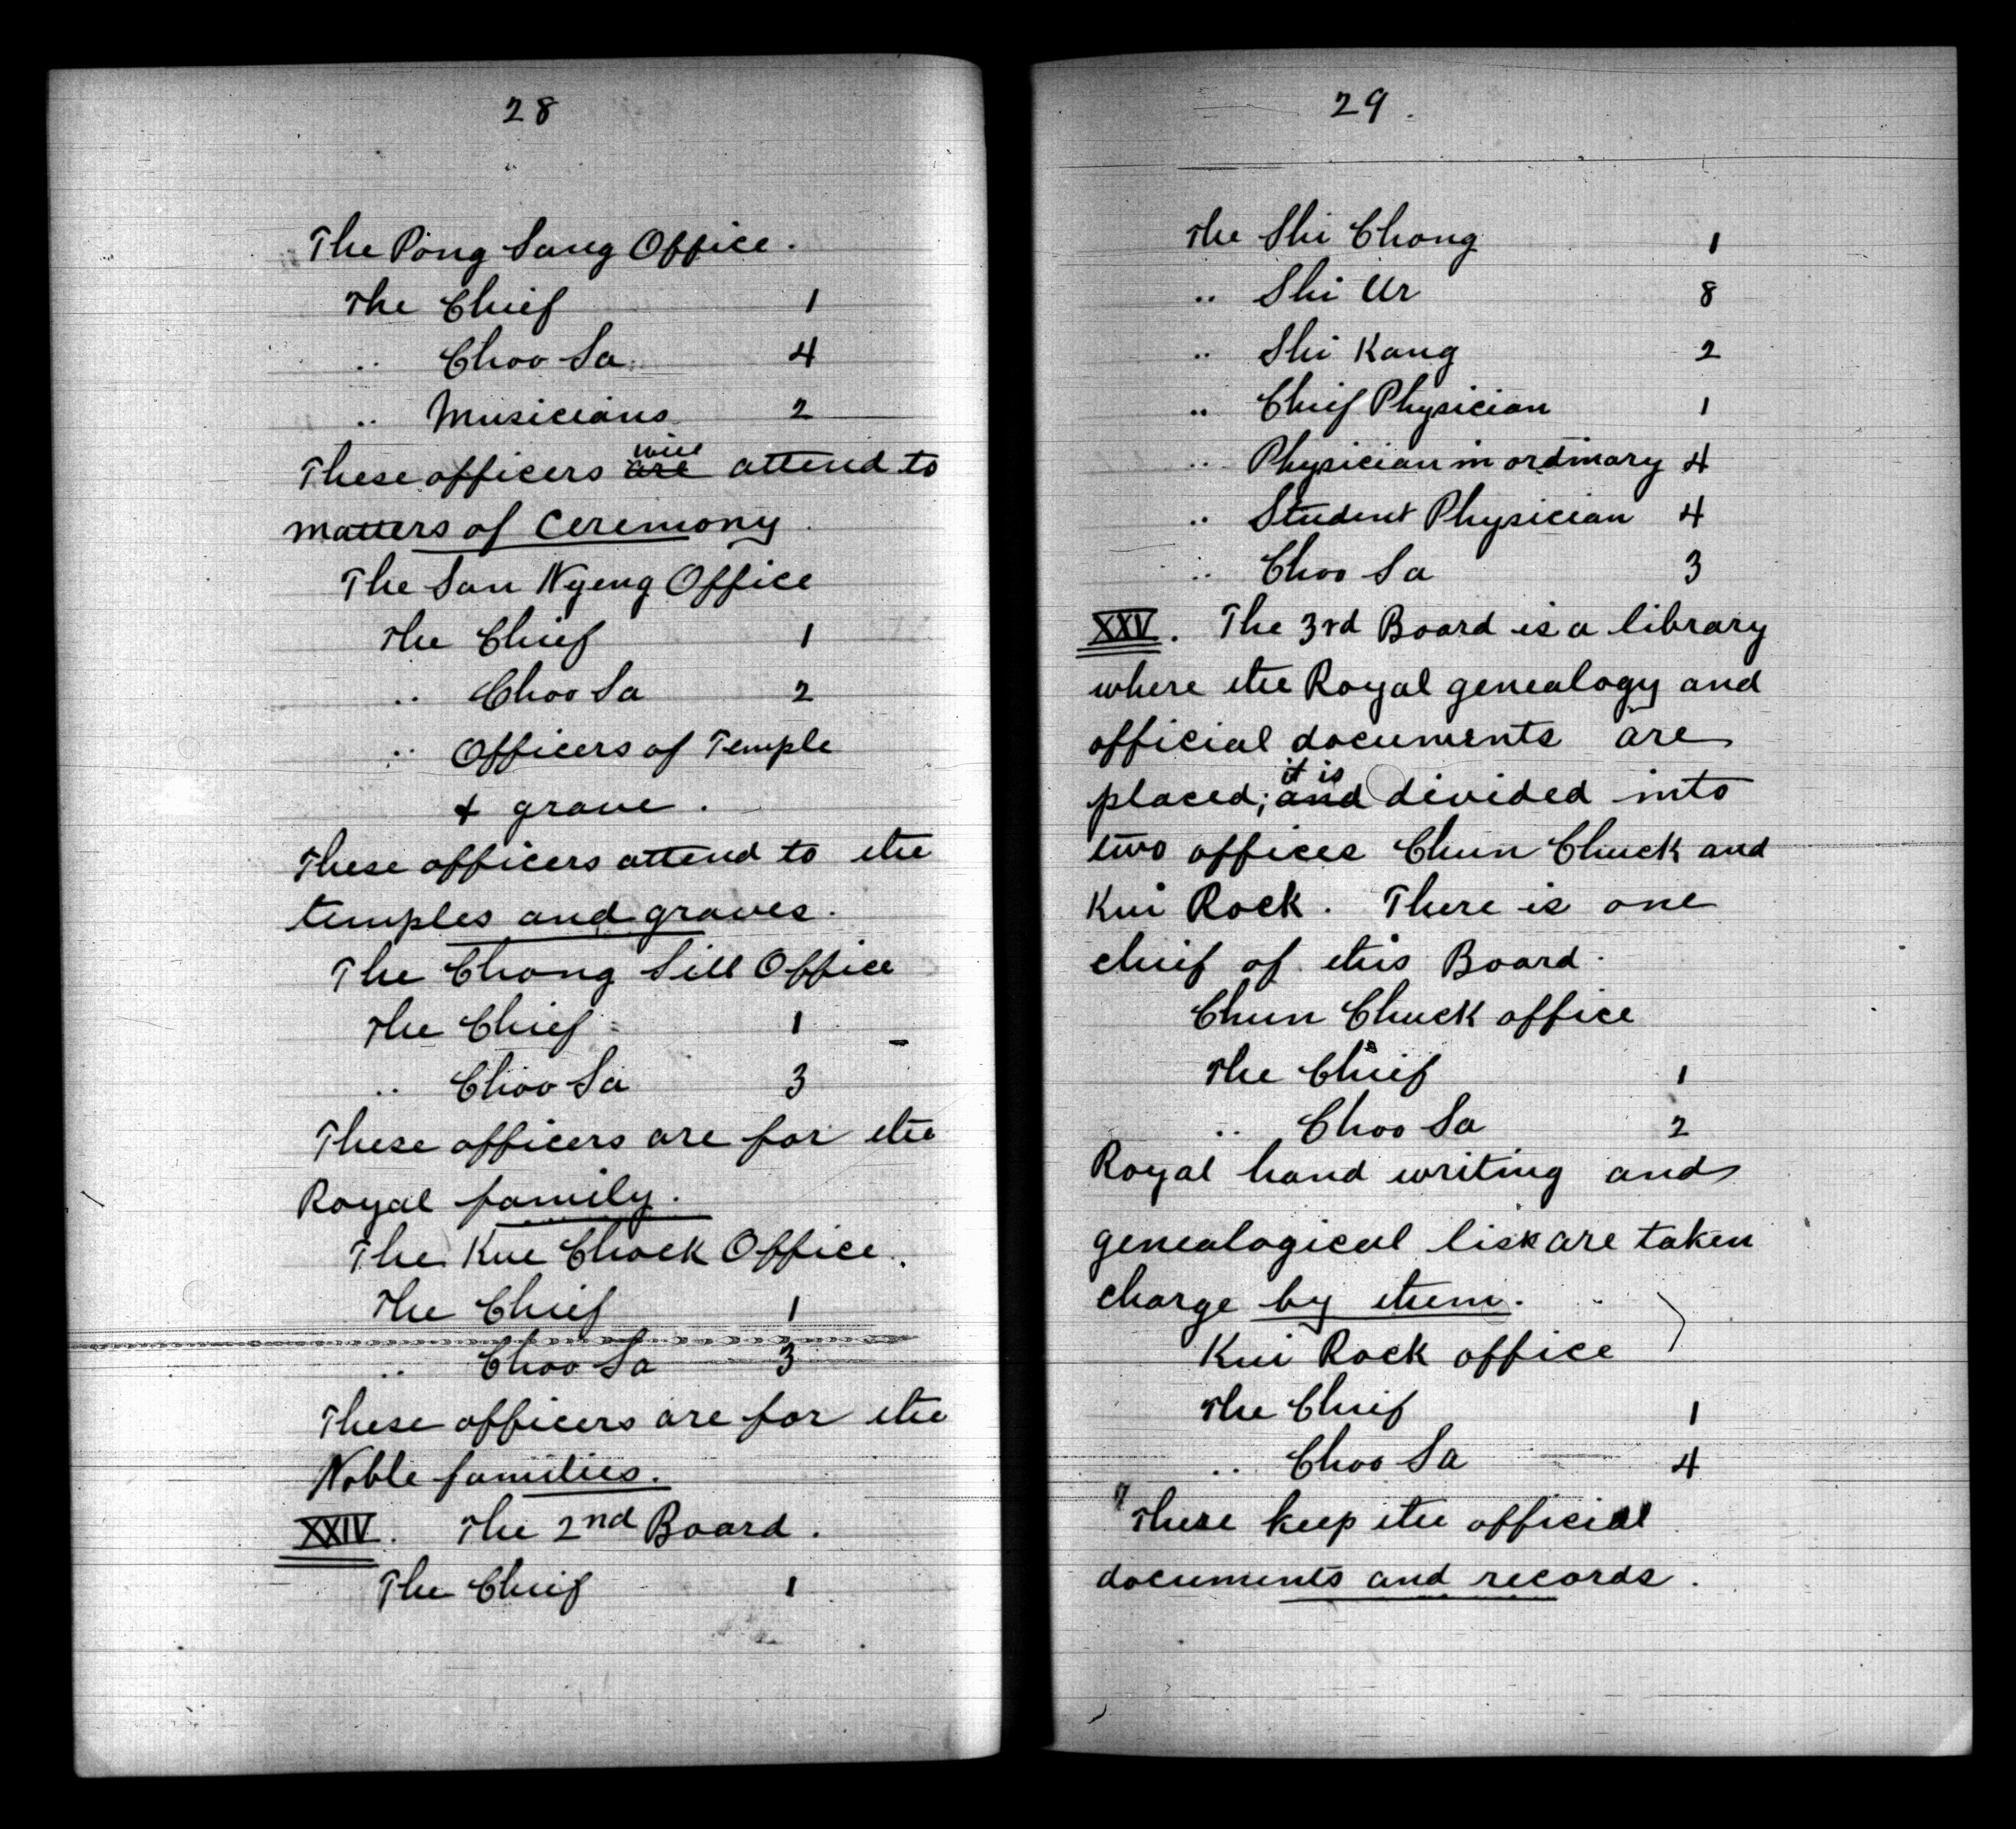 28
The Pong Sang Office.
The Chief 1
.. Choo Sa 4
.. Musicians 2
will
These officers are attend to
matters of Ceremony.
The San Nyeng Office
The Chief 1
.. Choo Sa 2
.. Officers of Temple
& grave.
These officers attend to the
temples and graves.
The Chong Sill Office
The Chief 1
.. Choo Sa 3
These officers are for the
Royal family.
The Kue Chock Office.
The Chief 1
.. Choo Sa 3
These officers are for the
Noble families.
XXIV. The 2nd Board.
The Chief 1
29.
The Shi Chong 1
.. Shi Ur 8
.. Shi Kang 2
.. Chief Physician 1
.. Physician in ordinary 4
.. Student Physician 4
.. Choo Sa 3
XXV. The 3rd Board is a library
where the Royal genealogy and
official documents are
it is
placed; and divided into
two offices Chun Chuck and
Kui Rock. There is one
chief of this Board.
Chun Chuck office
The Chief 1
.. Choo Sa 2
Royal hand writing and
genealogical lisk are taken
charge by them.
Kui Rock office
The Chief 1
.. Choo Sa 4
These keep the official
documents and records.